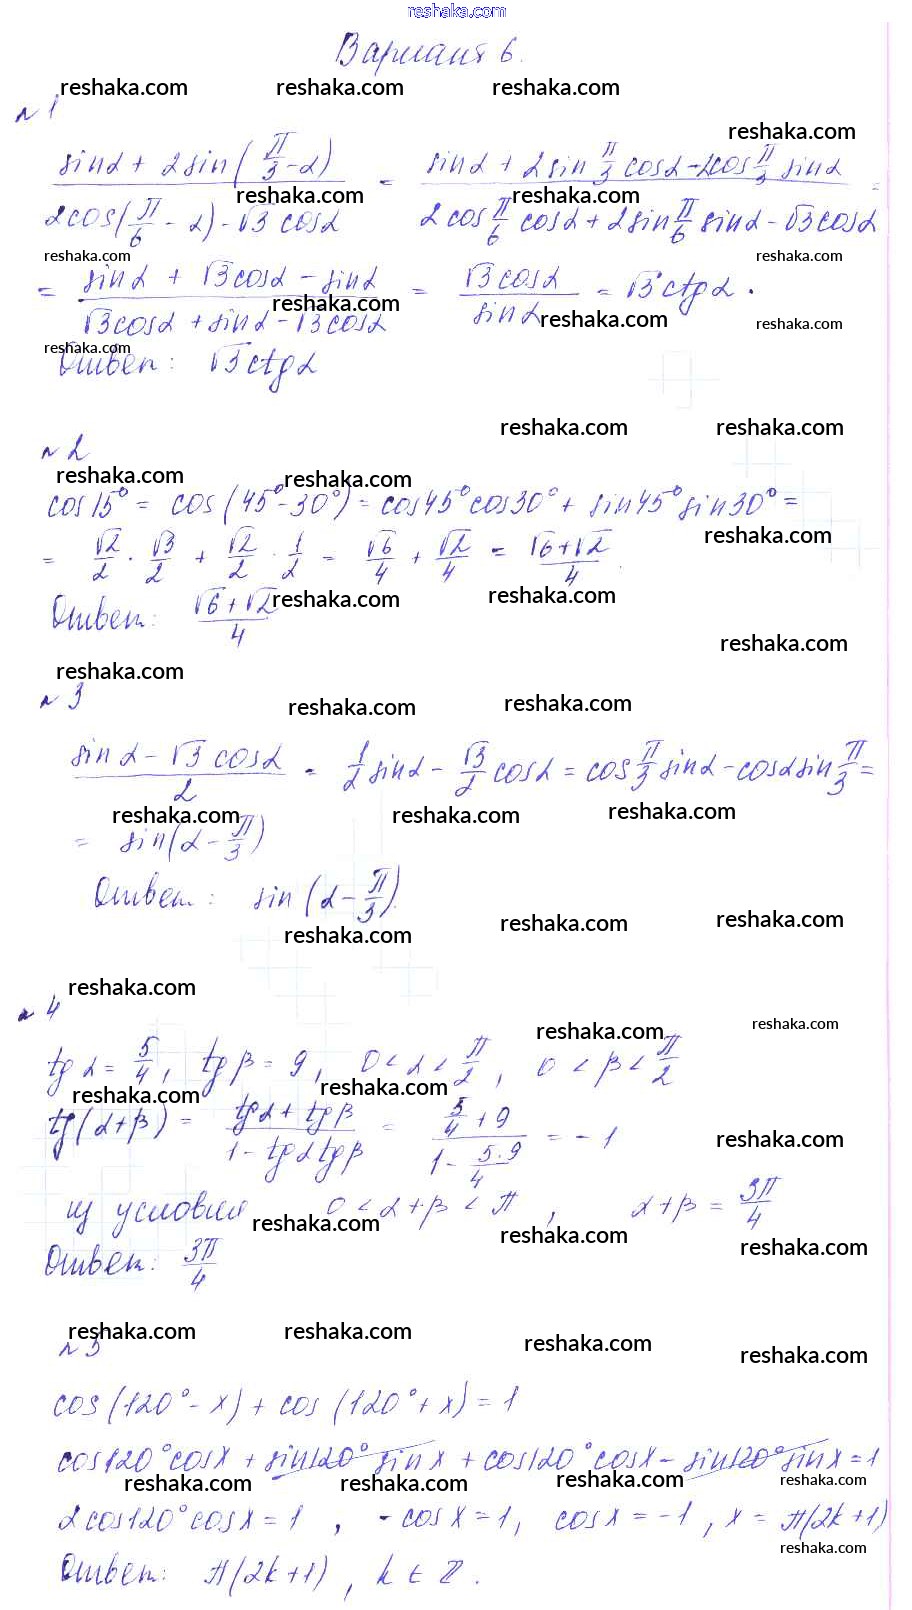 reshaka.com
Вариант 6.
reshaka.com reshaka.com reshaka.com
№ 1
reshaka.com
(sinα + 2sin(π/3 - α)) / (2cos(π/6 - α) - √3 cosα) = (sinα + 2sin π/3 cosα - 2cos π/3 sinα) / (2cos π/6 cosα + 2sin π/6 sinα - √3cosα) =
reshaka.com reshaka.com
reshaka.com reshaka.com
= (sinα + √3cosα - sinα) / (√3cosα + sinα - √3cosα) = √3cosα / sinα = √3ctgα.
reshaka.com reshaka.com reshaka.com
reshaka.com
Ответ: √3ctgα
reshaka.com reshaka.com
№ 2
reshaka.com reshaka.com
cos15° = cos(45°-30°) = cos45°cos30° + sin45°sin30° =
reshaka.com
= √2/2 · √3/2 + √2/2 · 1/2 = √6/4 + √2/4 = (√6+√2)/4.
reshaka.com reshaka.com
Ответ: (√6+√2)/4
reshaka.com
reshaka.com
№ 3
reshaka.com reshaka.com
(sinα - √3 cosα)/2 = 1/2 sinα - √3/2 cosα = cos π/3 sinα - cosα sin π/3 =
reshaka.com reshaka.com reshaka.com
= sin(α - π/3)
Ответ: sin(α - π/3).
reshaka.com reshaka.com reshaka.com
reshaka.com
№ 4
reshaka.com reshaka.com
tgα = 5/4, tgβ = 9, 0 < α < π/2, 0 < β < π/2
reshaka.com reshaka.com
tg(α+β) = (tgα + tgβ)/(1 - tgα tgβ) = (5/4 + 9)/(1 - 5·9/4) = -1
reshaka.com
из условия 0 < α+β < π, α+β = 3π/4
reshaka.com reshaka.com reshaka.com
Ответ: 3π/4
reshaka.com reshaka.com reshaka.com reshaka.com
№ 5
cos(120°-x) + cos(120°+x) = 1
cos120°cosx + sin120° sinx + cos120°cosx - sin120°sinx = 1
reshaka.com reshaka.com reshaka.com reshaka.com
2cos120°cosx = 1, -cosx = 1, cosx = -1, x = π(2k+1)
reshaka.com
Ответ: π(2k+1), k ∈ ℤ.